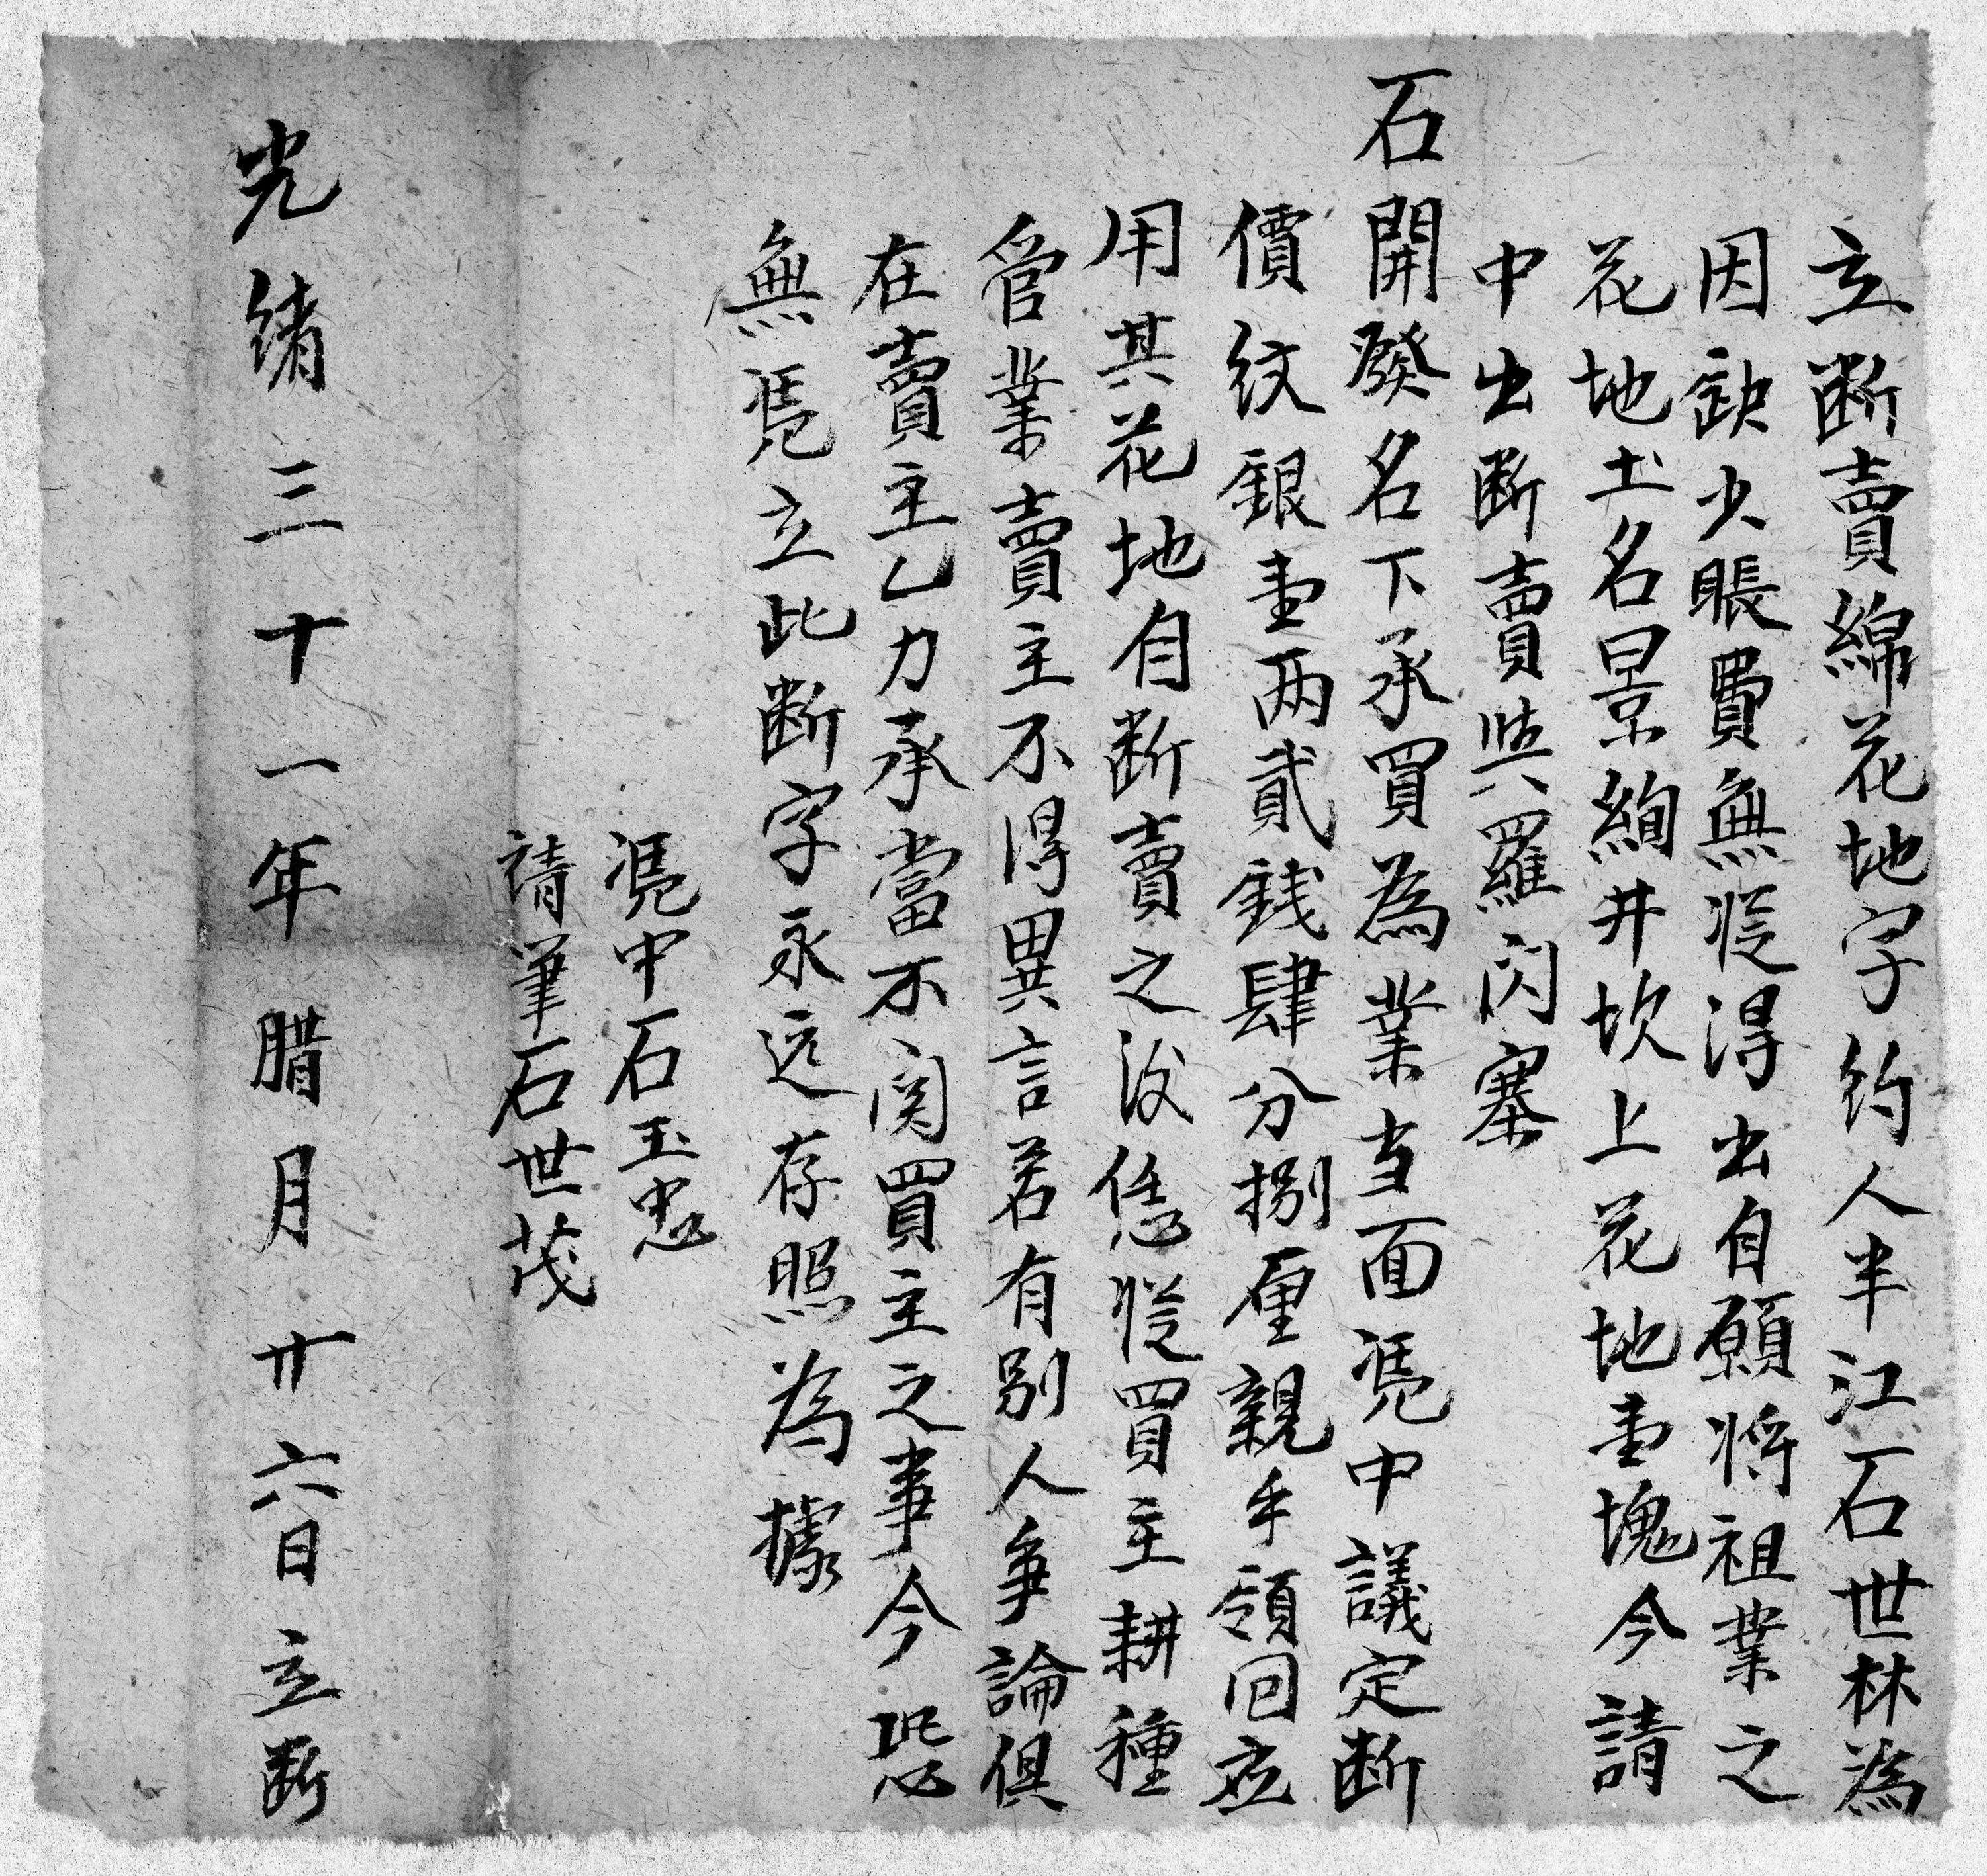 立断賣綿花地字約人半江石世林為
因缺少賬費無從得出自願将祖業之
花地土名景絢井坎上花地壹塊今請
中出断賣與羅闪寨
石開發名下承買為業当面凴中議定断
價紋銀壹两貳錢肆分捌厘親手領回应
用其花地自断賣之後恁從買主耕種
管業賣主不得異言若有别人争論俱
在賣主乙力承當不関買主之事今恐
無凴立此断字永远存照為據
凴中石玉忠
請筆石世茂
光緒三十一年腊月廿六日立断